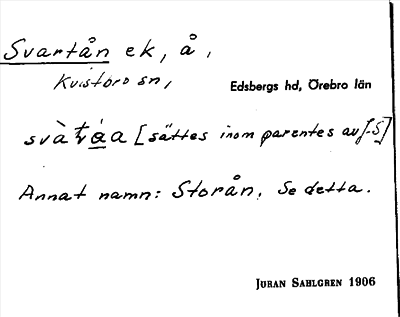 Svartån ek, å,
Kvistbro sn,
Edsbergs hd, Örebro län
[sättes inom parentes av J.S]
Annat namn: Storån. Se detta.
JURAN SAHLGREN 1906